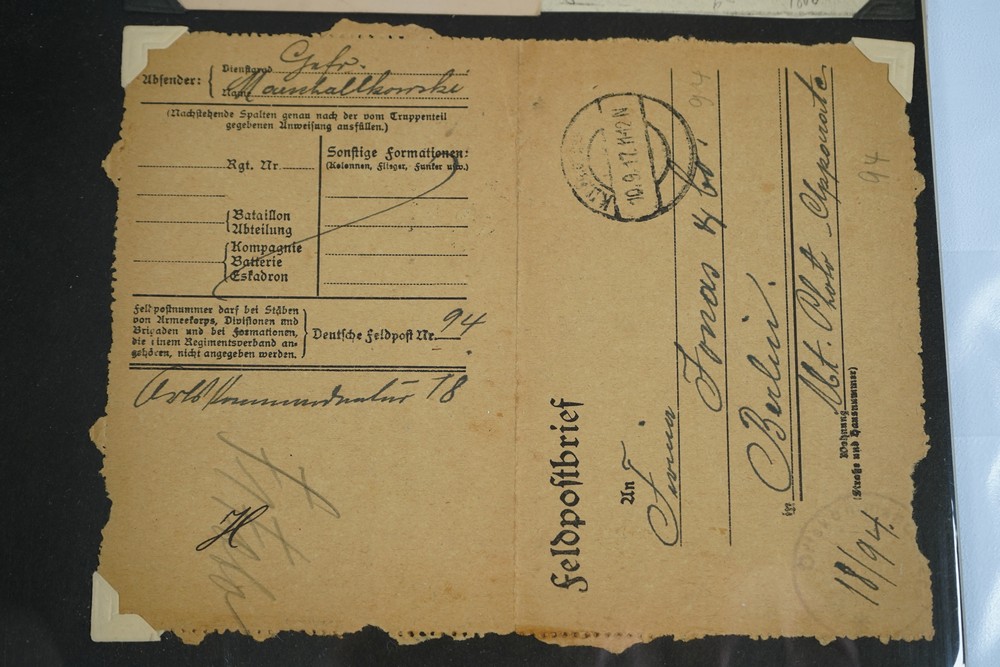 Absender:
Dienstgrad Gefr.
Name
(Nachstehende Spalten genau nach der vom Truppenteil
gegebenen Anweisung ausfüllen.)
Rgt. Nr.
Bataillon
Abteilung
Kompagnie
Batterie
Eskadron
Sonstige Formationen:
(Kolonnen, Flieger, Funker usw.)
Feldpostnummer darf bei Stäben
von Armeekorps, Divisionen und
Brigaden und bei Formationen,
die einem Regimentsverband an-
gehören, nicht angegeben werden.
Deutsche Feldpost Nr. 94
Ortskommandantur 18
Feldpostbrief
An
Firma
Jonas & Co.
94
in Berlin.
Abt. Photo-Apparate
94
Wohnung
(Straße und Hausnummer)
18/94.
10.9.17.11-12 N